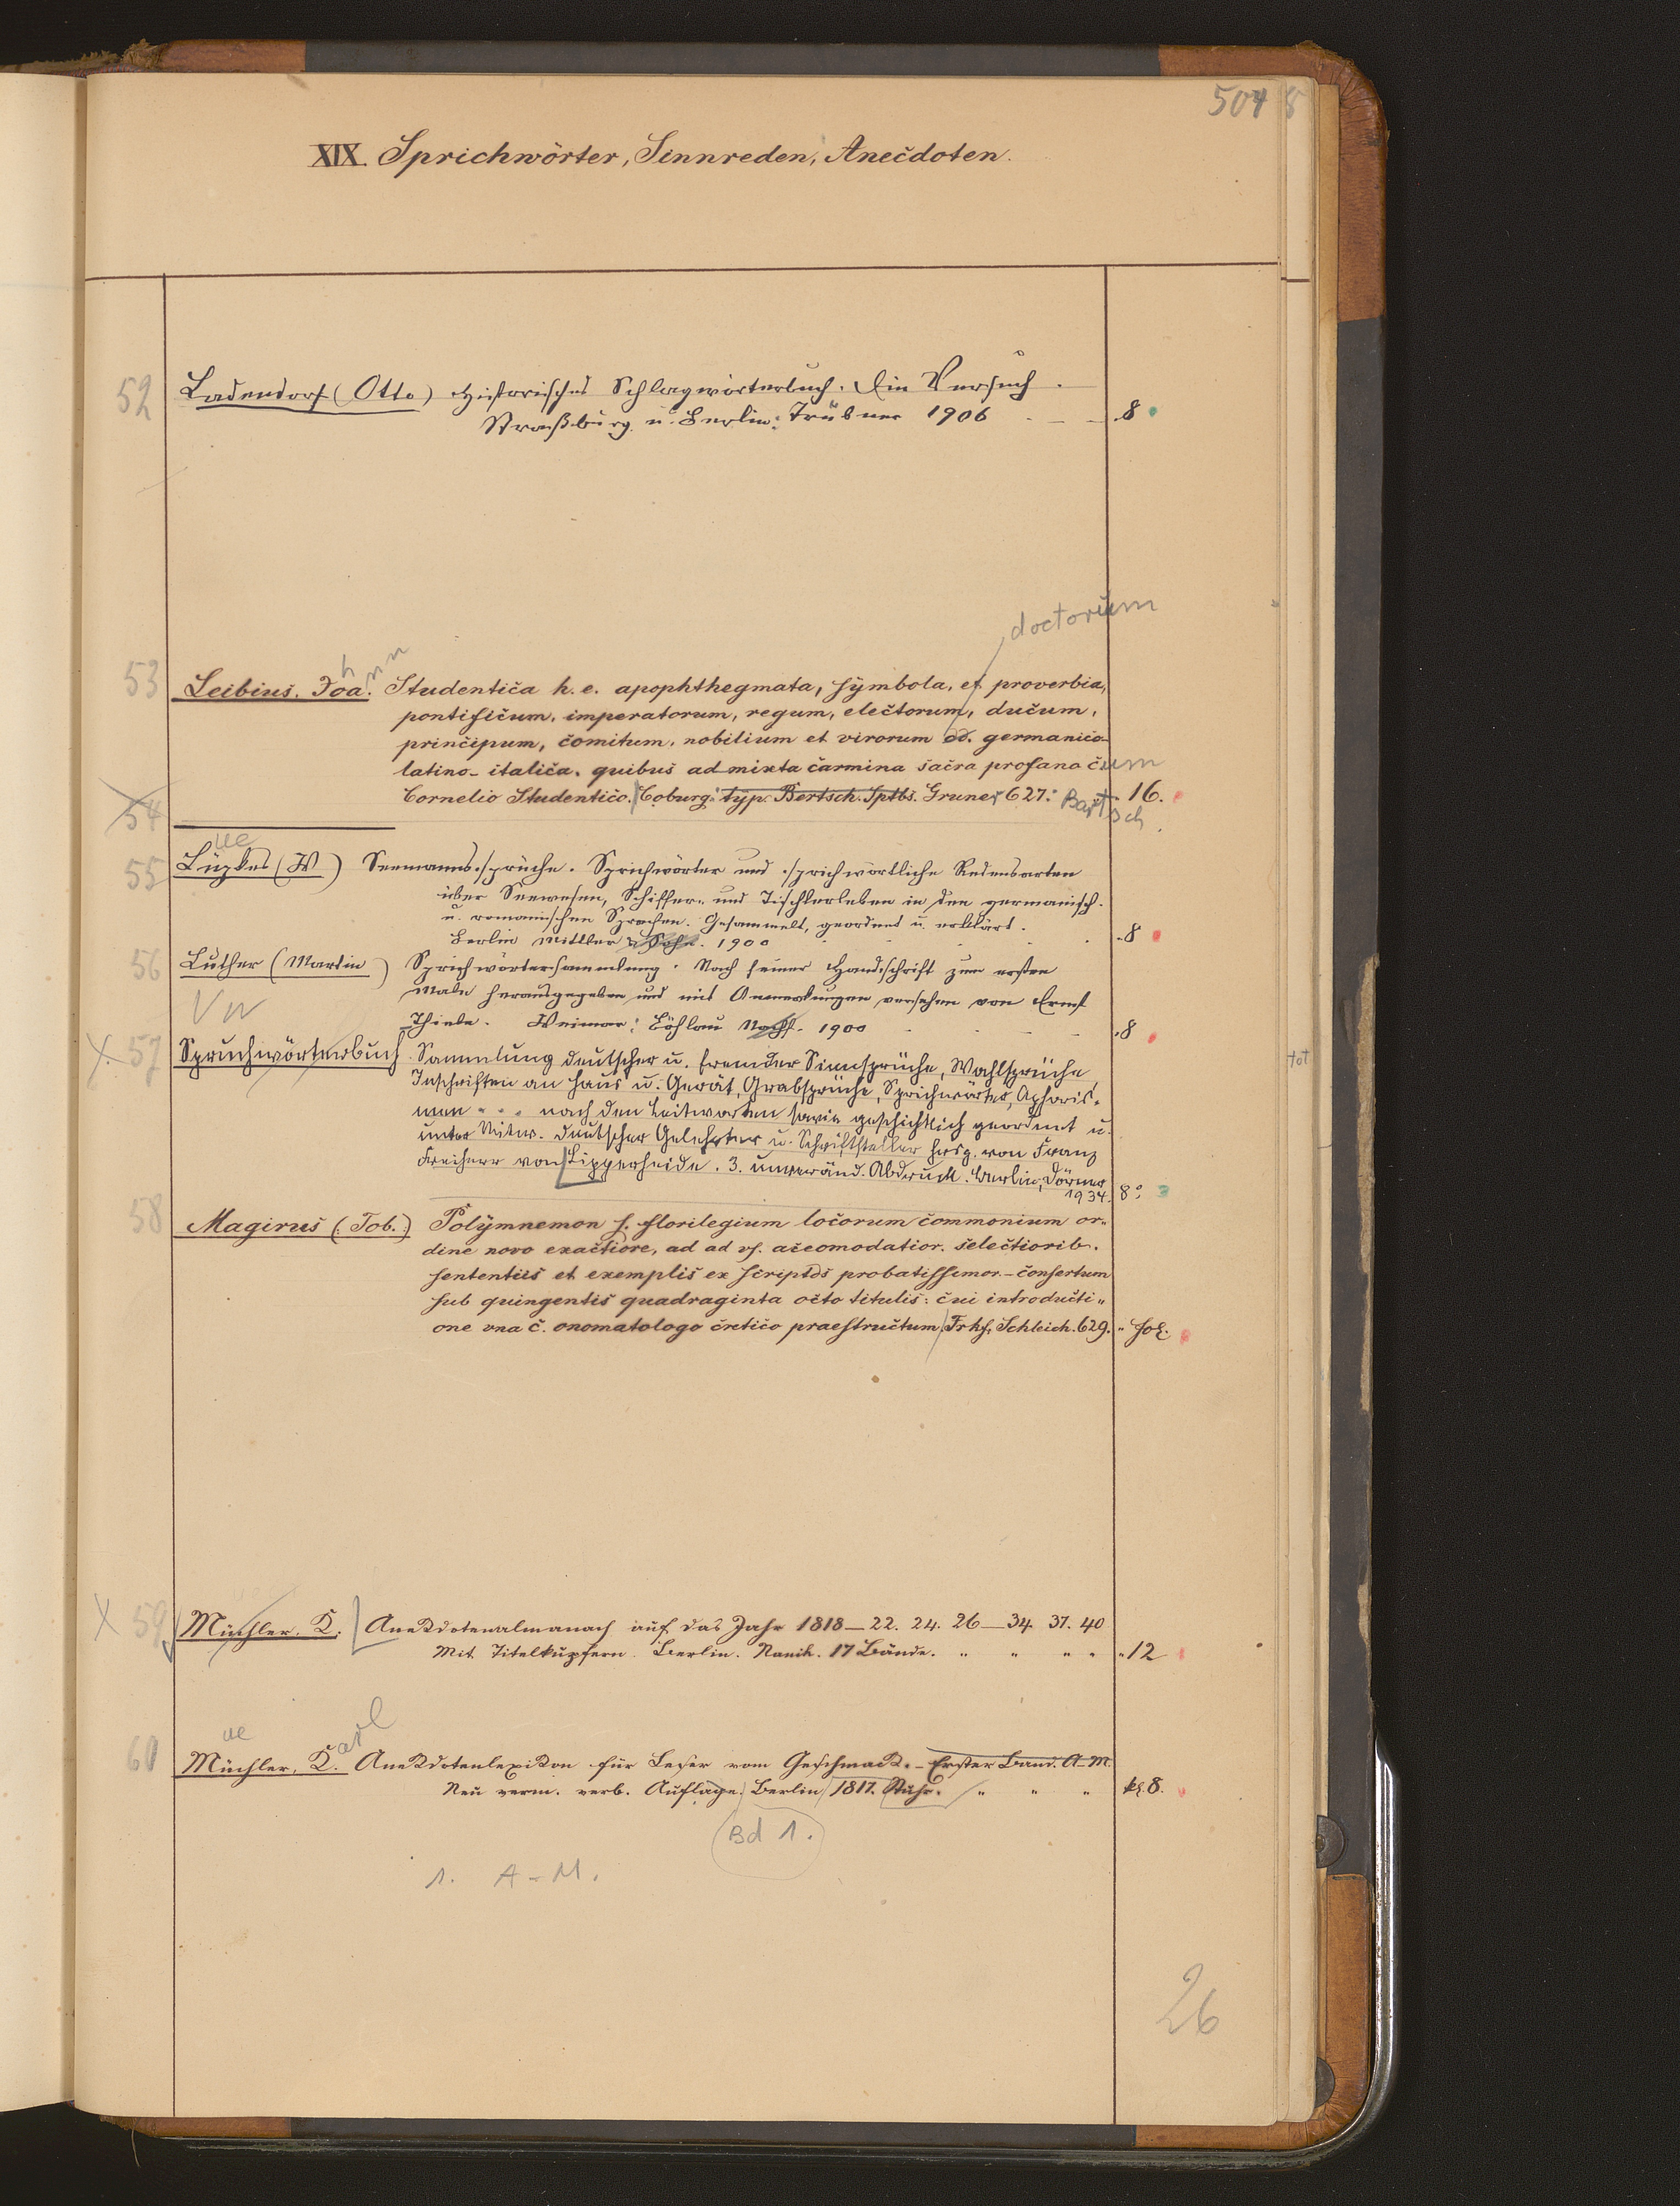 504 8
XIX. Sprichwörter, Sinnreden, Anecdoten.
52 Ladendorf (Otto) Historisches Schlagwörterbuch. Ein Versuch.
Straßburg u. Berlin: Trübner 1906 8
doctorum
53 Leibius. Joa. hnn Studentica h. e. apophthegmata, symbola, et proverbia,
pontificum, imperatorum, regum, electorum, ducum,
principum, comitum, nobilium et virorum dd. germanico-
latino-italica. quibus admixta carmina sacra profana cum
Cornelio Studentico. Coburg: typ. Bertsch. Sptbs. Gruner 627. Bartsch 16.
54
ue
55 Lüpkes (W) Seemanns-sprüche. Sprichwörter und sprichwörtliche Redensarten
über Seewesen, Schiffer- und Fischerleben in den germanisch.
u. romanischen Sprachen. Gesammelt, geordnet u. erklärt.
Berlin Mittler & Sohn. 1900 8
56 Luther (Martin) Sprichwörtersammlung. Nach seiner Handschrift zum ersten
Male herausgegeben und mit Anmerkungen versehen von Ernst
Thiele. Weimar: Böhlau Nachf. 1900 8
X 57 Spruchwörterbuch. Sammlung deutscher u. fremder Sinnsprüche, Wahlsprüche,
Inschriften an Haus u. Gerät, Grabsprüche, Sprichwörter, Aphoris-
men . . . nach den Leitworten sowie geschichtlich geordnet u.
unter Mitw. deutscher Gelehrter u. Schriftsteller hrsg. von Franz
Freiherr von Lipperheide. 3. unveränd. Abdruck. Berlin: Dörner
1934. 8°.
58 Magirus (Tob.) Polymnemon s. florilegium locorum commonium or-
dine novo exactiore, ad ad vs. accomodatior. selectiorib.
sententiis et exemplis ex scriptos probatissimor. - consertum
sub quingentis quadraginta octo titulis: cui introducti-
one vna c. onomatologo cretico praestructum. Frkf. Schleich. 629. Fol.
X 59 Müchler. K. Anekdotenalmanach auf das Jahr 1818—22. 24. 26—34. 37. 40
Mit Titelkupfern. Berlin. 17 Bände. 12
ue arl
60 Müchler, K. Anekdotenlexikon für Leser vom Geschmack. - Erster Band. A-M.
Neu verm. verb. Auflage. Berlin 1817. Stuhr. kl. 8.
Bd 1.
1. A-M.
26